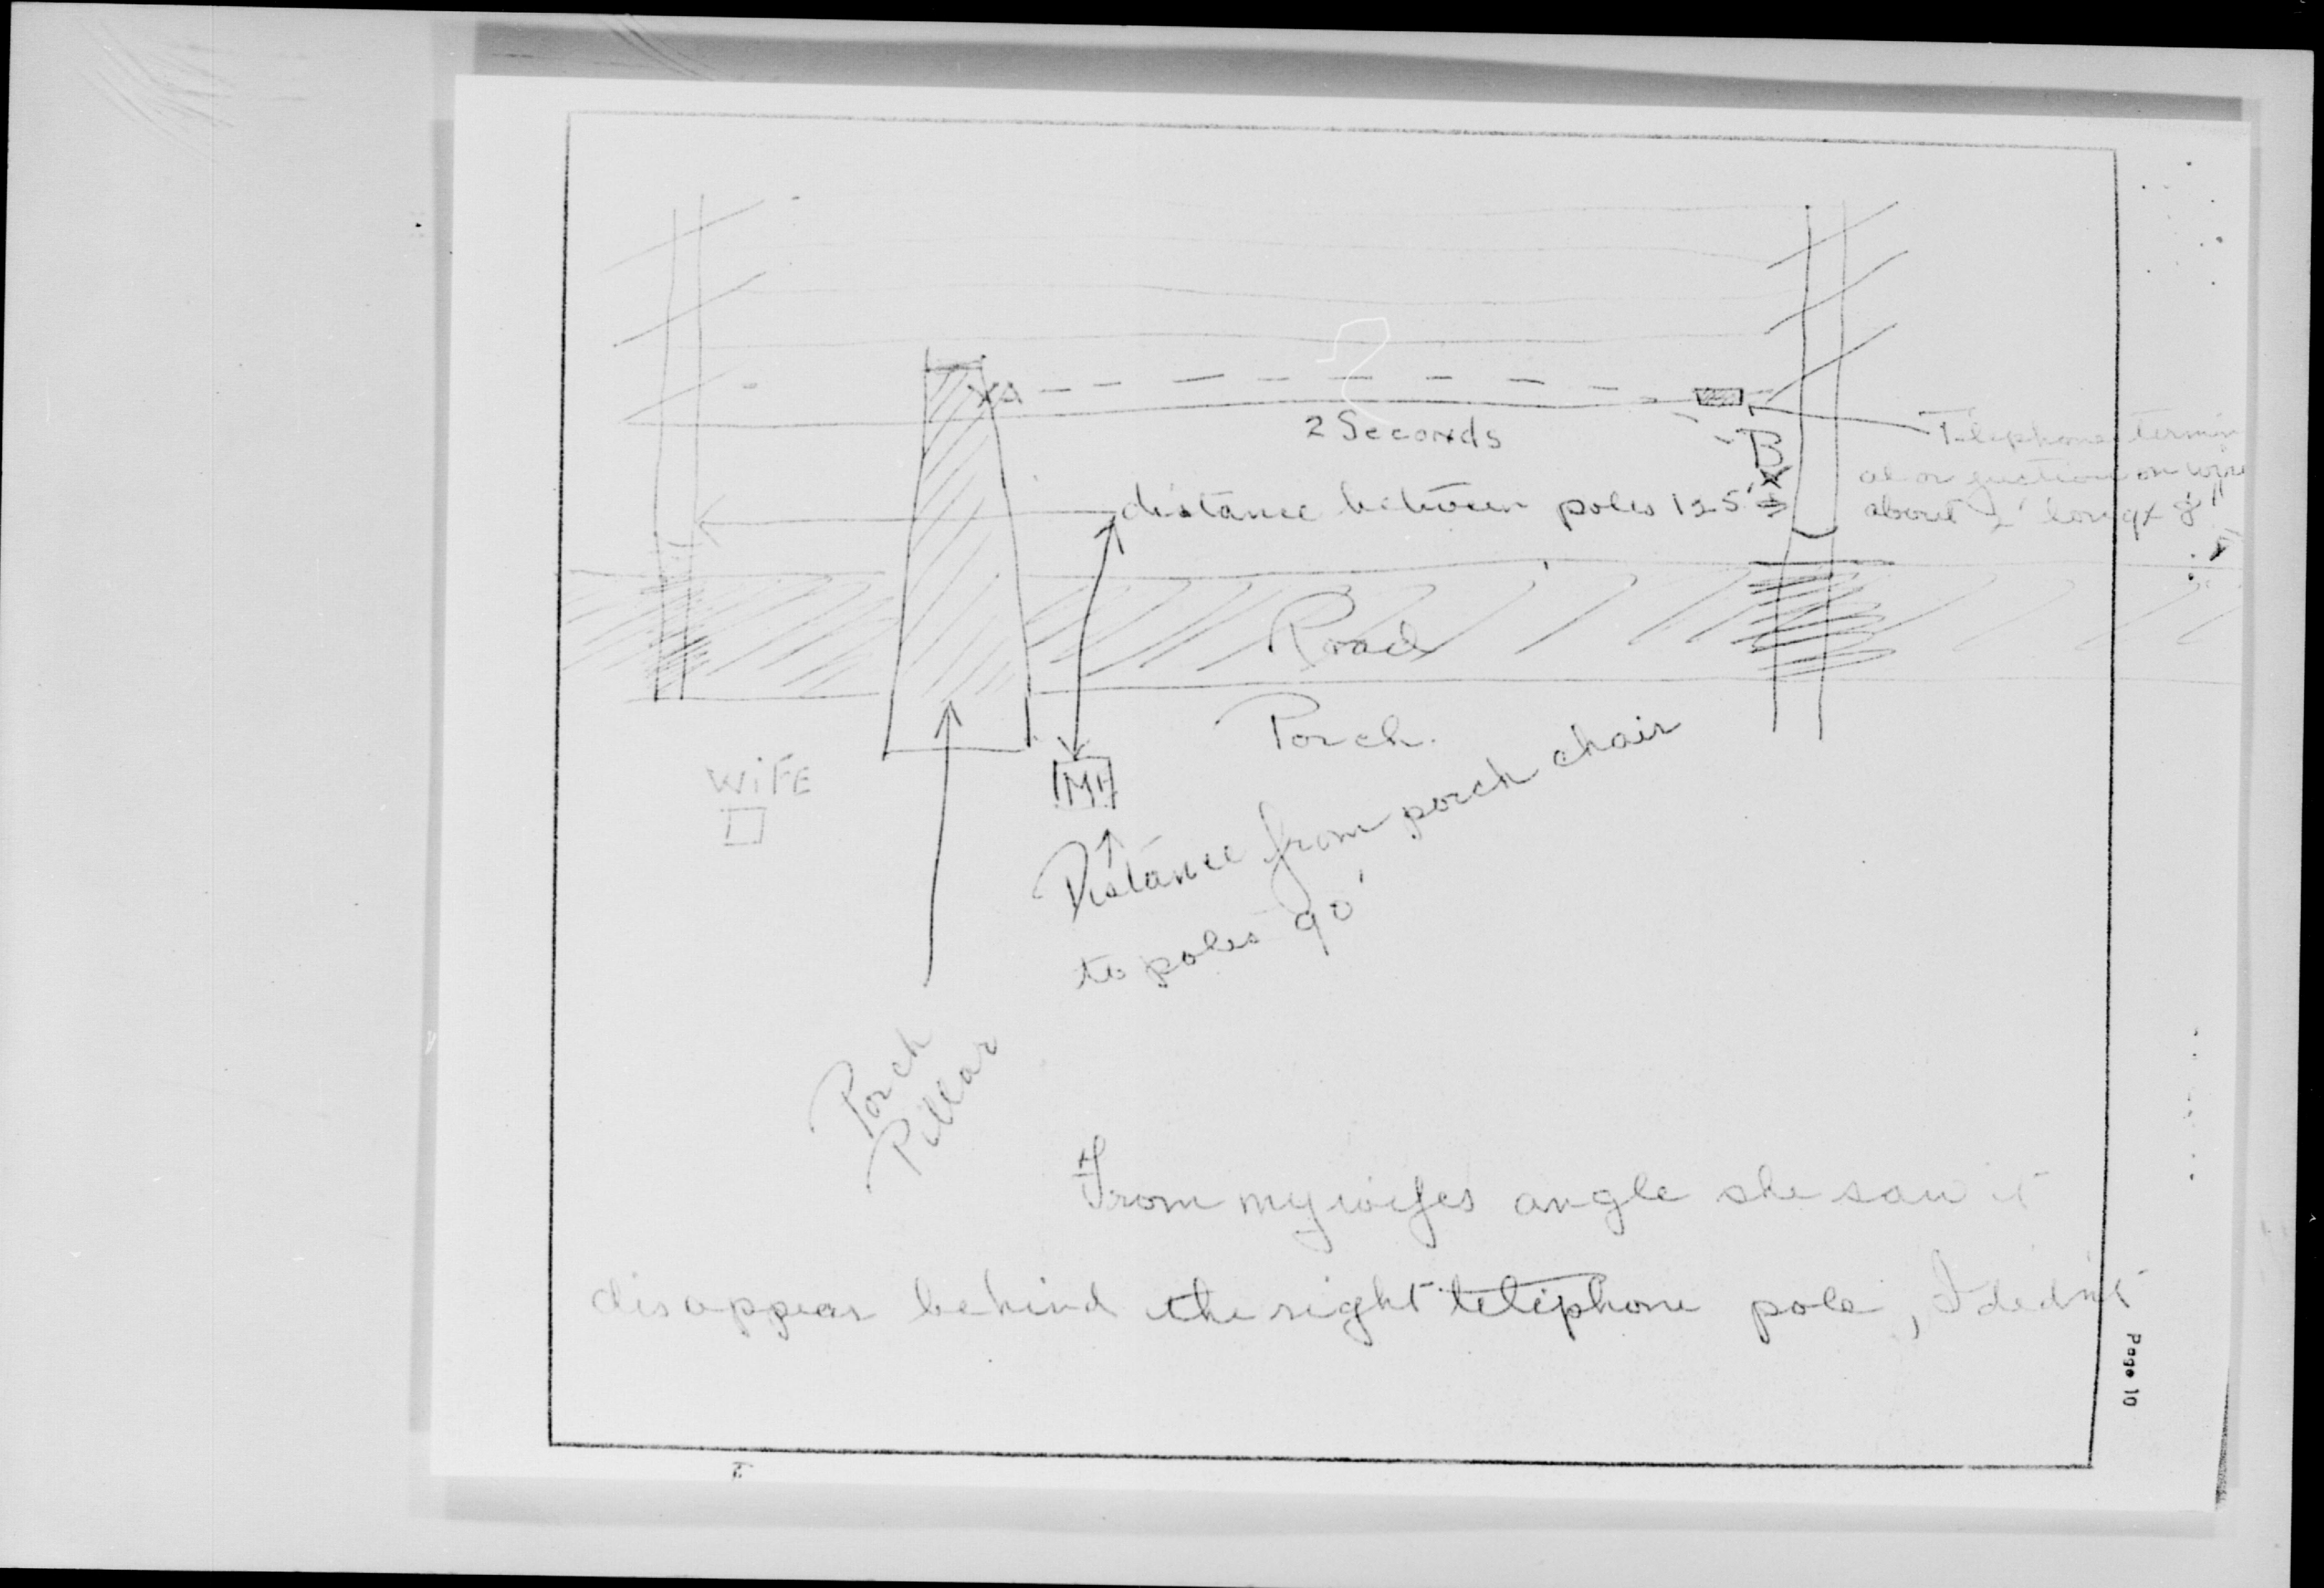 XA
2 Seconds
B
X
Telephone termin
al or juction on wire
about 2' long x 8"
distance between poles 125'
Road
Porch.
WiFE
ME
Distance from porch chair
to poles 90'
Porch
Pillar
From my wifes angle she saw it
disappear behind the right telephone pole, I didn't
Page 10